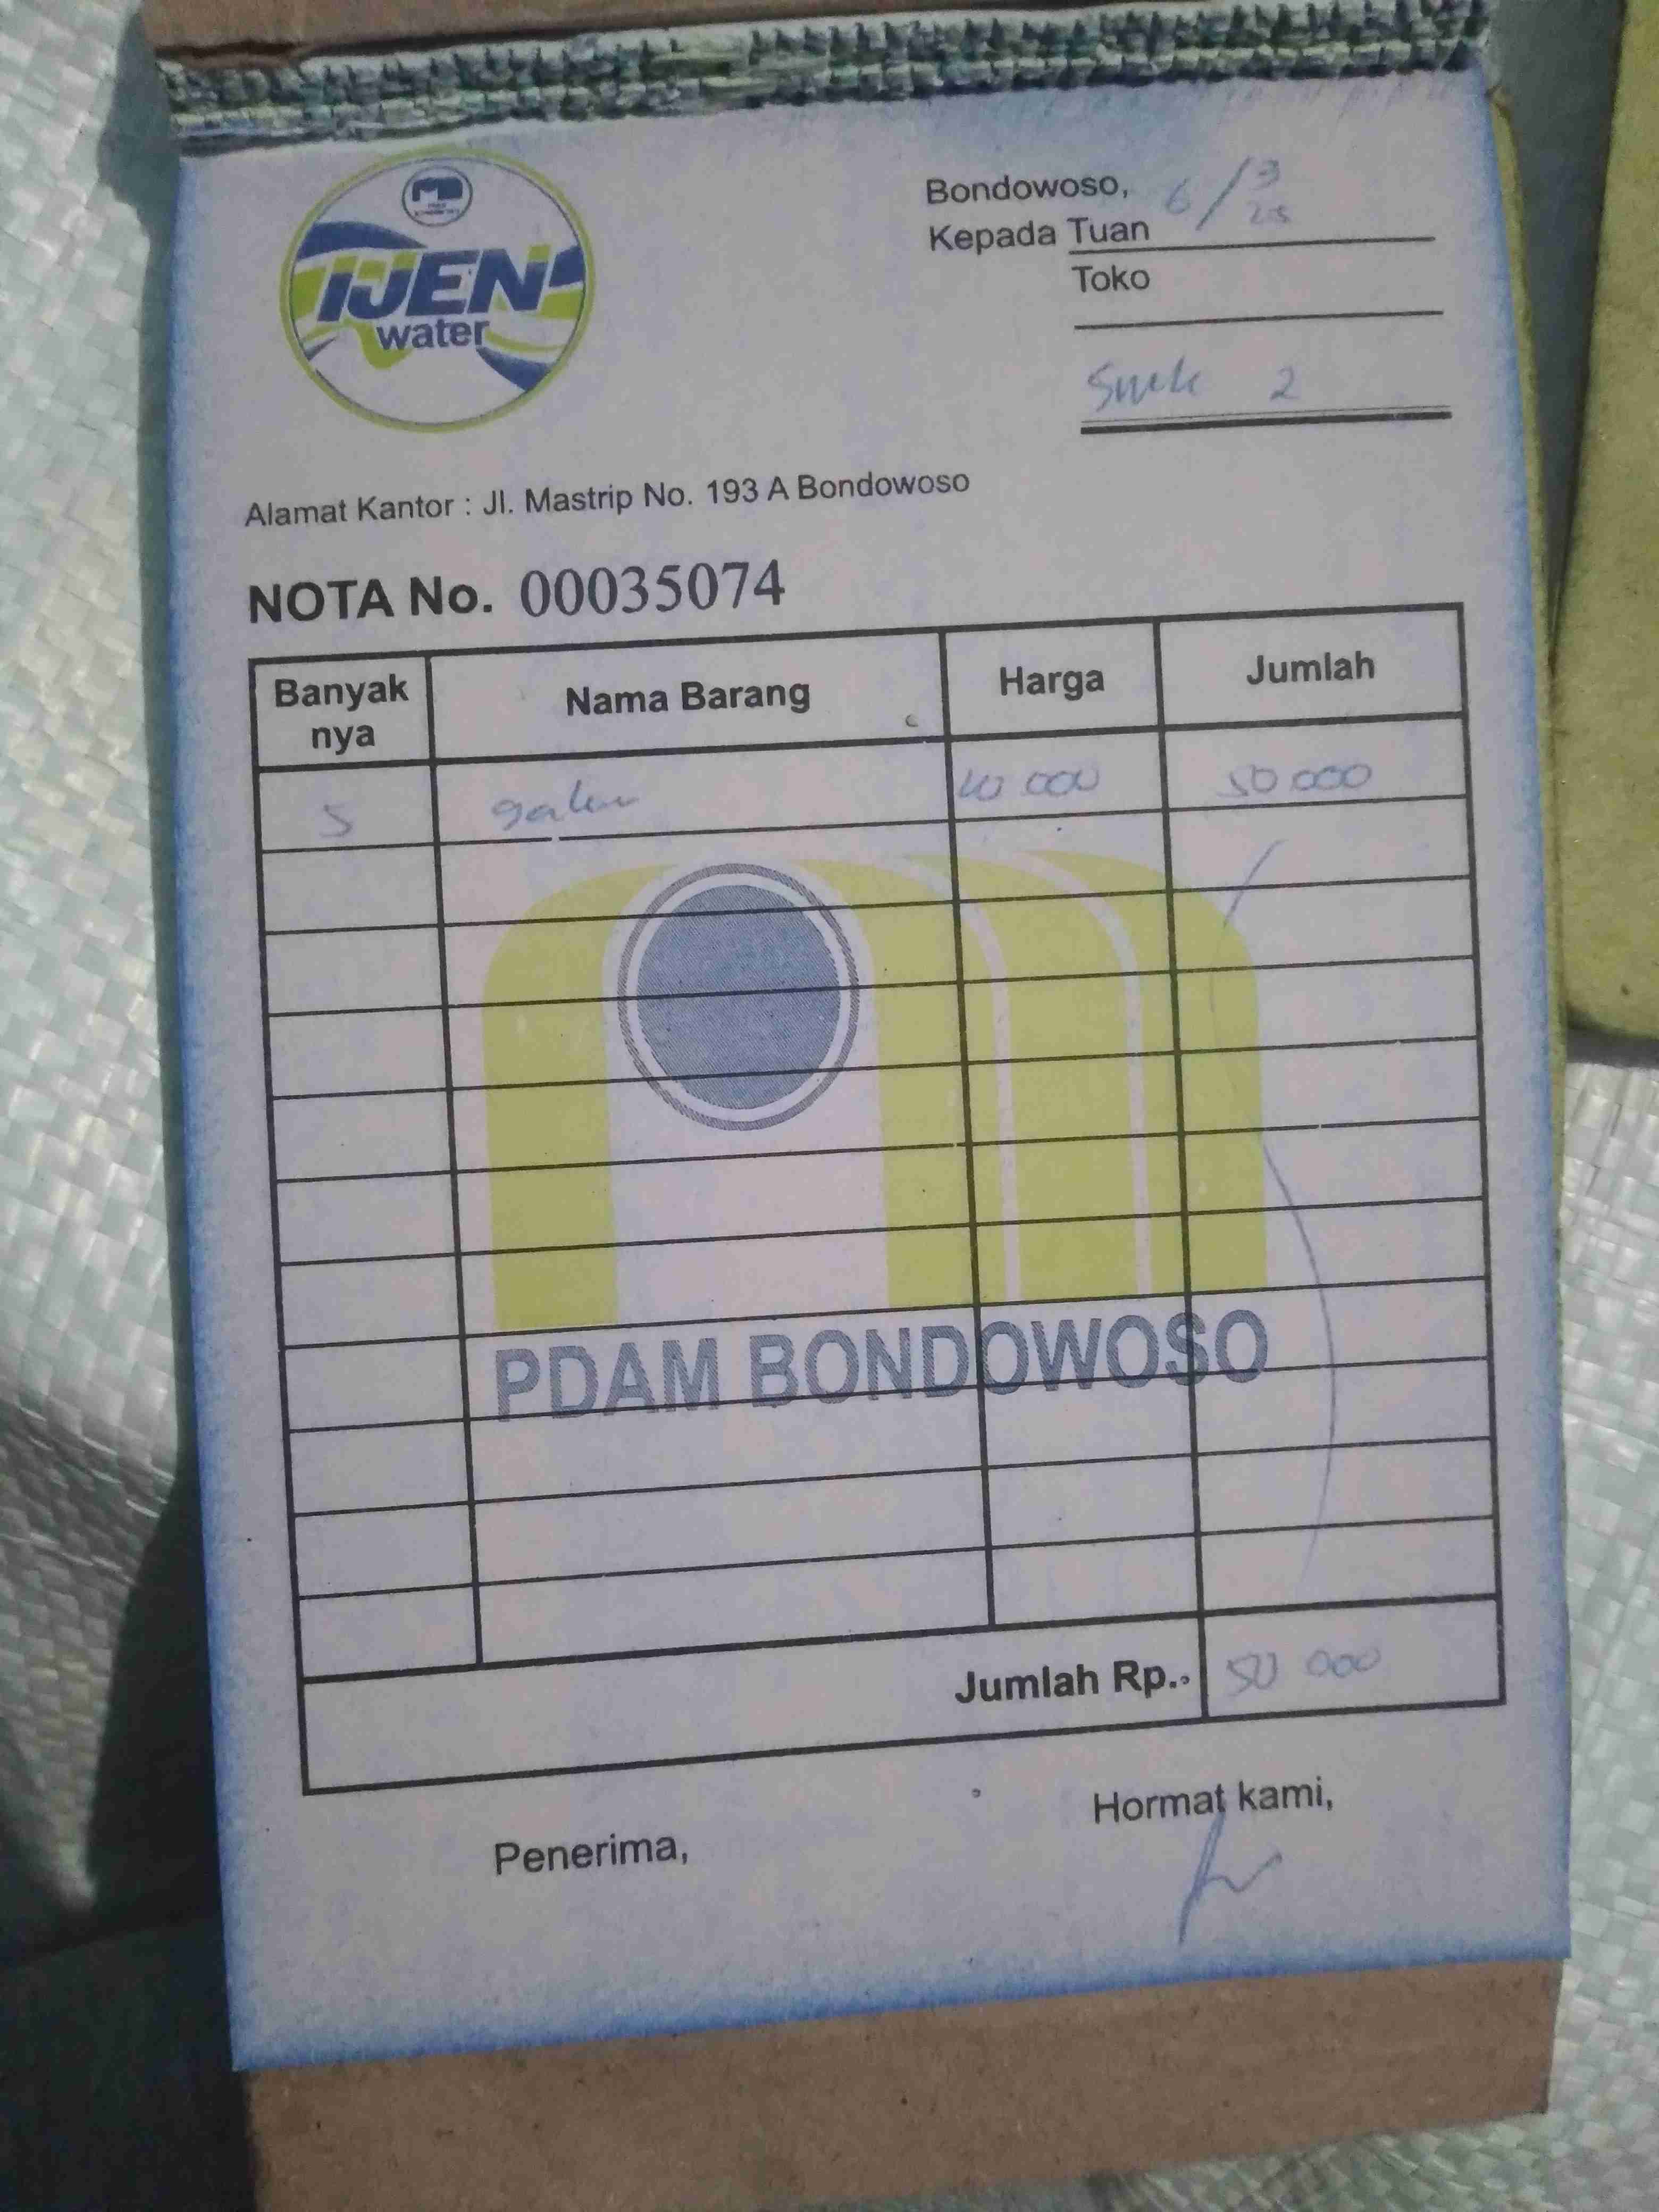 IJEN
water
Bondowoso, 6/3
Kepada Tuan
Toko
Smk 2
Alamat Kantor : Jl. Mastrip No. 193 A Bondowoso
NOTA No. 00035074
Banyak nya Nama Barang Harga Jumlah
5 galon 10 000 50 000
PDAM BONDOWOSO
Jumlah Rp. 50 000
Hormat kami,
Penerima,